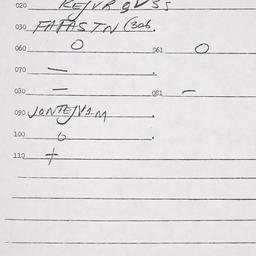 020
030 FAFASTN (306.
060 O 061 O
070 —
080 — 081 —
090 JONTEJV1M
100 O
110 +